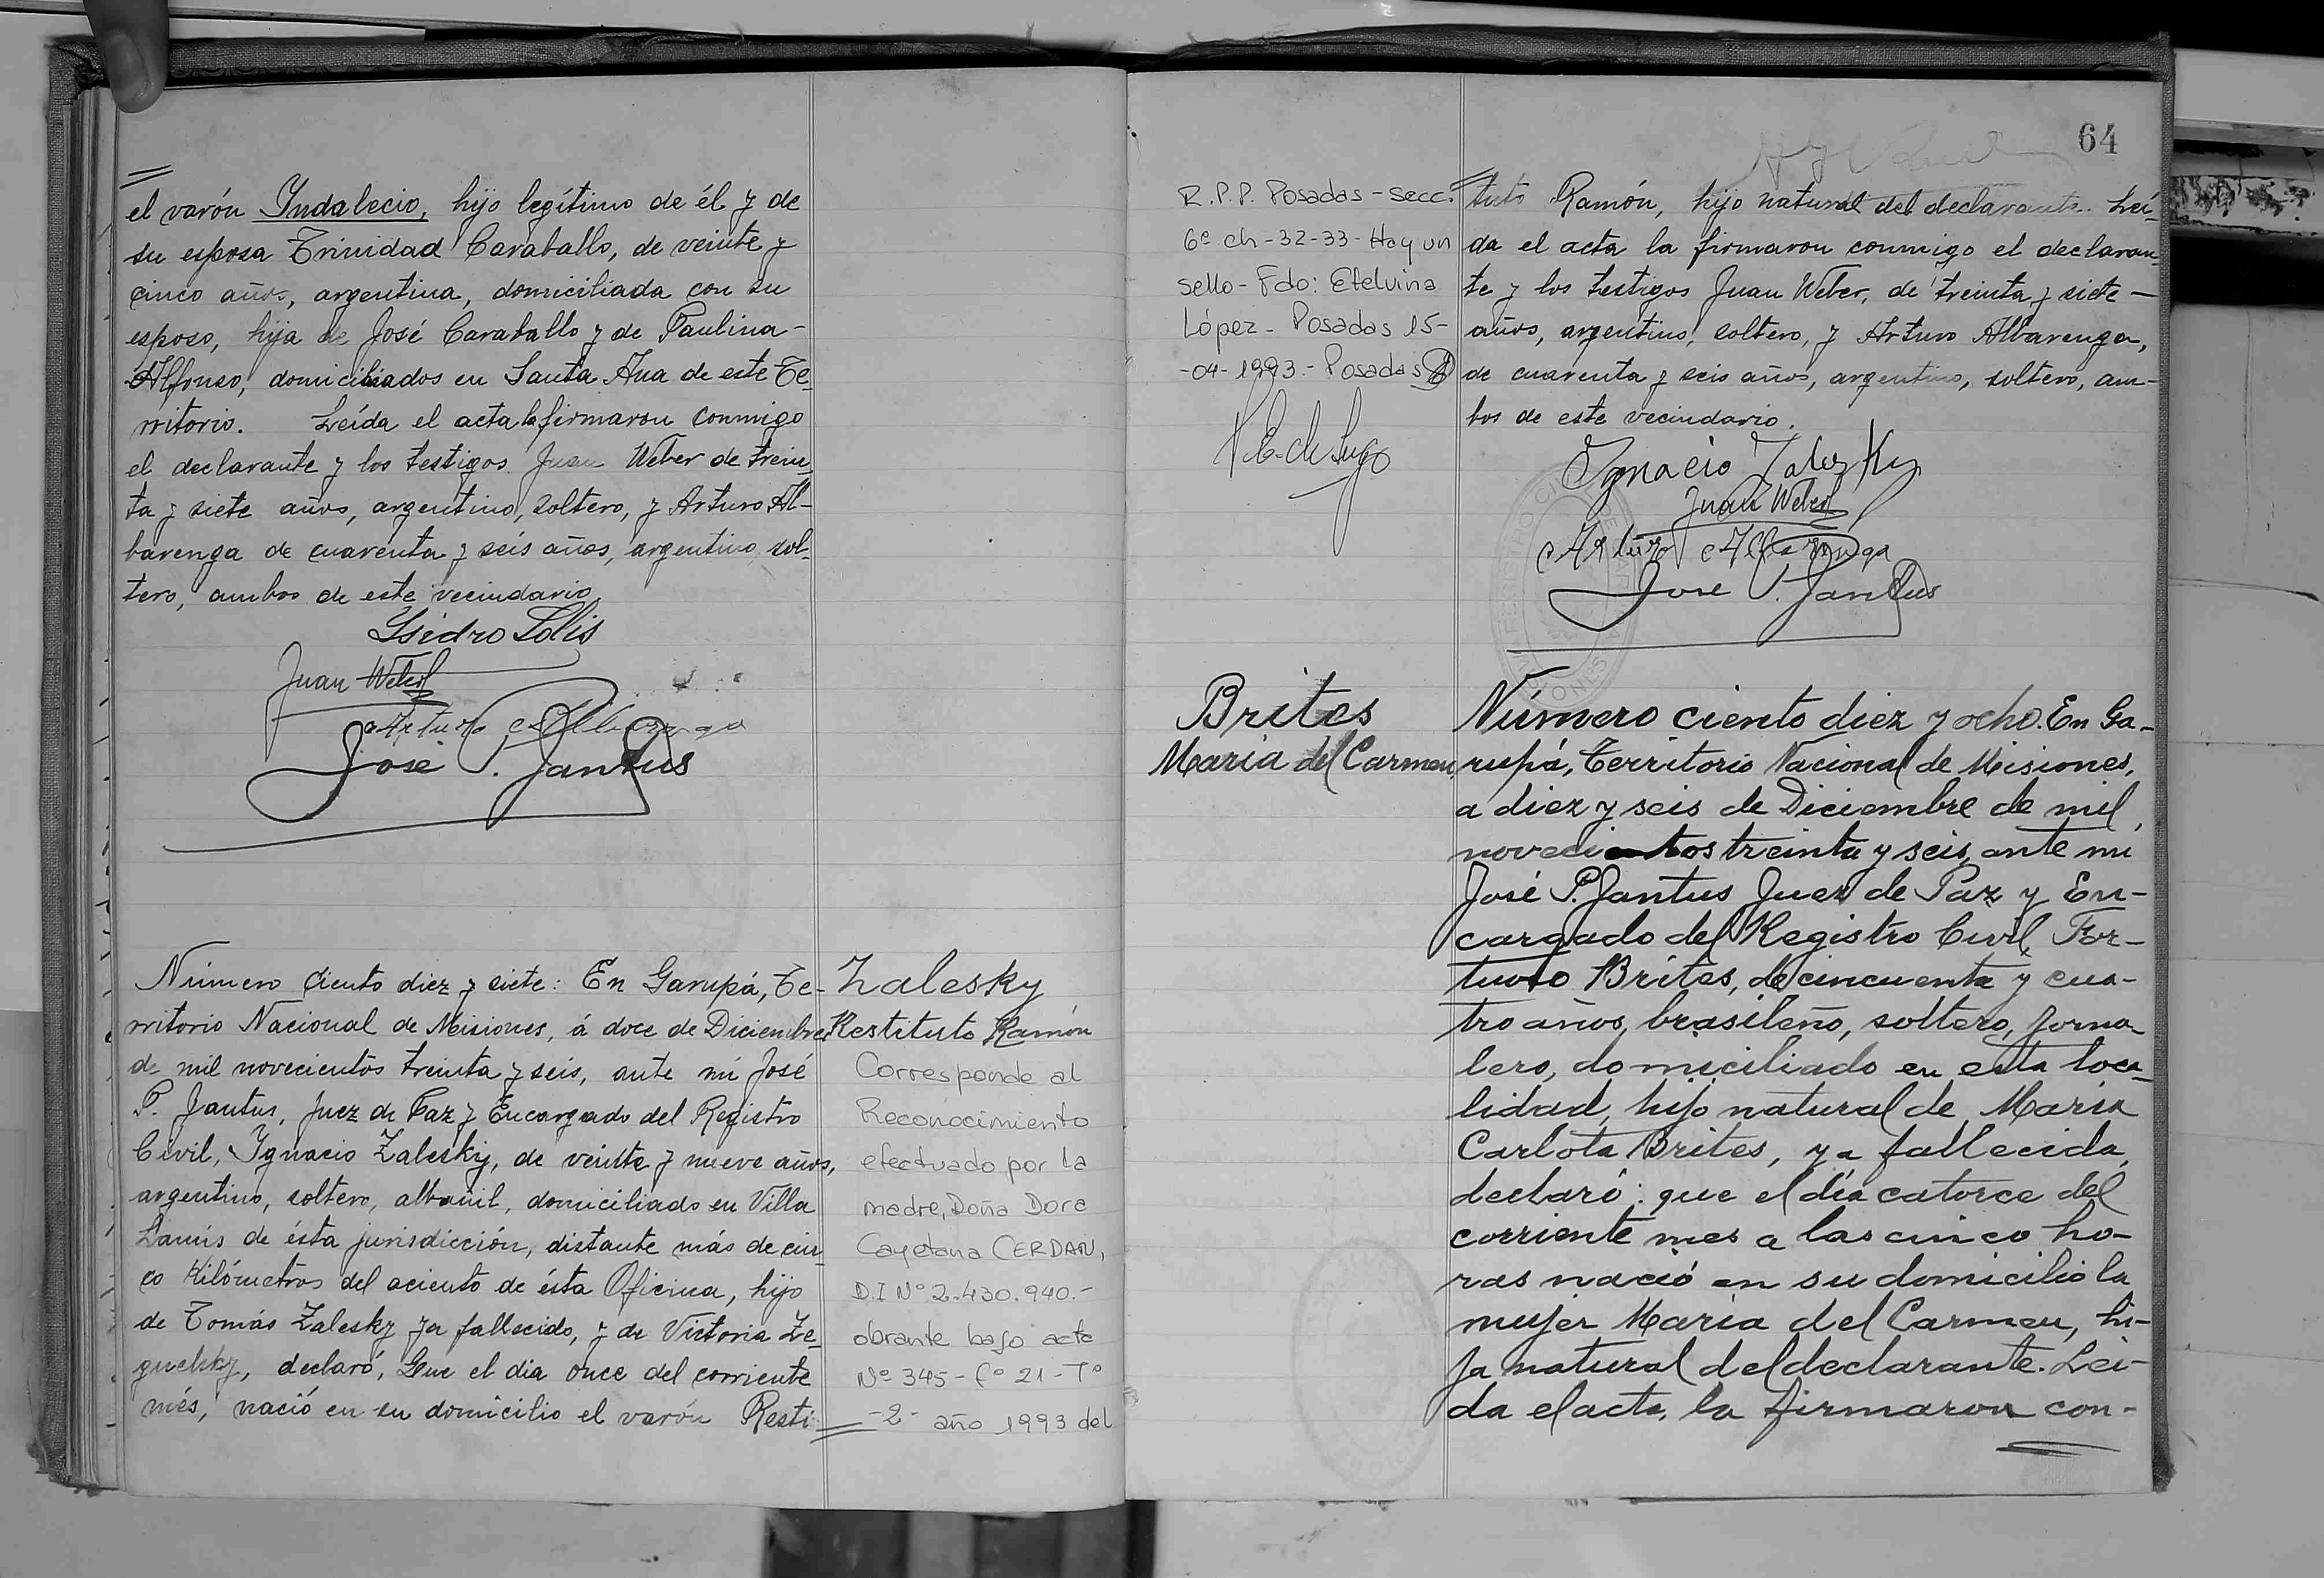 el varón Yndalecio, hijo legítimo de él y de
su esposa Trinidad Caraballo, de veinte y
cinco años, argentina, domiciliada con su
esposo, hija de José Caraballo y de Paulina-
Alfonso, domiciliados en Santa Ana de este Te-
rritorio. Leída el acta la firmaron conmigo
el declarante y los testigos Juan Weber de trein-
ta y siete años, argentino, soltero, y Arturo Al-
barenga de cuarenta y seis años, argentino, sol-
tero, ambos de este vecindario.
Ysidro Solis
Juan Weber
Arturo Albarenga
José P. Jantus
Número Ciento diez y siete: En Garupá, Te-
rritorio Nacional de Misiones, á doce de Diciembre
de mil novecientos treinta y seis, ante mi José
P. Jantus, Juez de Paz y Encargado del Registro
Civil, Ygnacio Zalesky, de veinte y nueve años,
argentino, soltero, albañil, domiciliado en Villa
Lanús de ésta jurisdicción, distante más de cin-
co Kilómetros del aciento de ésta Oficina, hijo
de Tomás Zalesky ya fallecido, y de Victoria Ze-
quelsky, declaró, Que el dia once del corriente
més, nació en su domicilio el varón Resti-
Zalesky
Restituto Ramón
Corresponde al
Reconocimiento
efectuado por la
madre, Doña Dora
Cayetana CERDAN,
D.I Nº 2.430.940.-
obrante bajo acta
Nº 345 - fº 21 - Tº
-2- año 1993 del
R.P.P. Posadas - secc.
6º ch - 32-33 - Hay un
sello - Fdo: Etelvina
López - Posadas 15-
-04-1993.- Posadas
64
tuto Ramón, hijo natural del declarante. Leí-
da el acta la firmaron conmigo el declaran-
te y los testigos Juan Weber, de treinta y siete -
años, argentino, soltero, y Arturo Albarenga,
de cuarenta y seis años, argentino, soltero, am-
bos de este vecindario.
Ygnacio Zalesky
Juan Weber
Arturo Albarenga
José P. Jantus
Brites
Maria del Carmen
Número ciento diez y ocho. En Ga-
rupá, Territorio Nacional de Misiones,
a diez y seis de Diciembre de mil
novecientos treinta y seis, ante mi
José P. Jantus Juez de Paz y En-
cargado del Registro Civil, For-
tunato Brites, de cincuenta y cua-
tro años, brasileño, soltero, jorna-
lero, domiciliado en esta loca-
lidad, hijo natural de Maria
Carlota Brites, ya fallecida,
declaró: que el día catorce del
corriente mes a las cinco ho-
ras nació en su domicilio la
mujer Maria del Carmen, hi-
ja natural del declarante. Lei-
da el acta, la firmaron con-